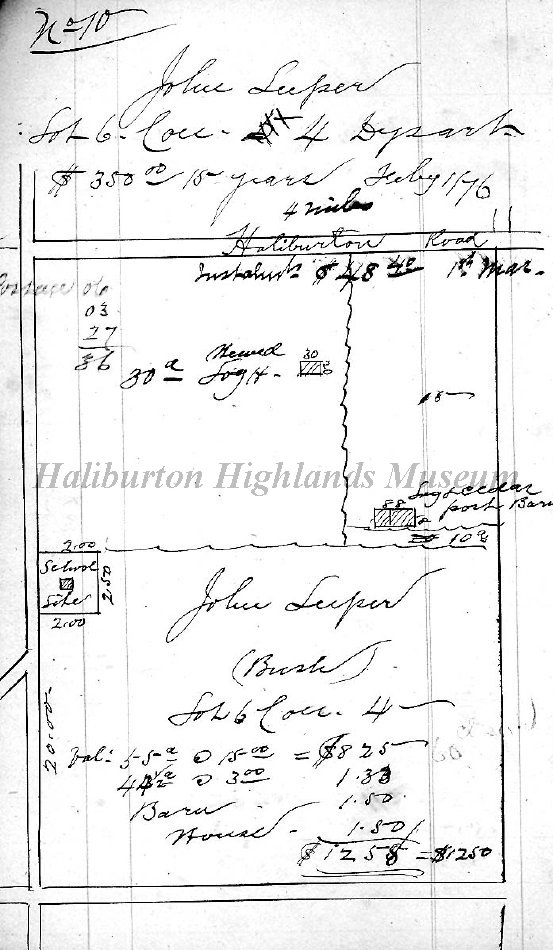 No 10
John Leeper
Lot 6 Con. 4 Dysart
$350.00 15 years Feby 1/76
4 miles
Haliburton Road
Instalmts $48.40 1st Mar.
06
03
27
36
30a Hewed Log H. 30
15
Haliburton Highlands Museum
88 Log & cedar
post Barn
10a
2.00
School
Site
2.50
2.00
20.00
John Leeper
(Bush)
Lot 6 Con. 4
Val: 55a @ 15.00 = $825
44 1/2a @ 3.00 1.33
Barn 1.50
House 1.50
$1258 = $1250